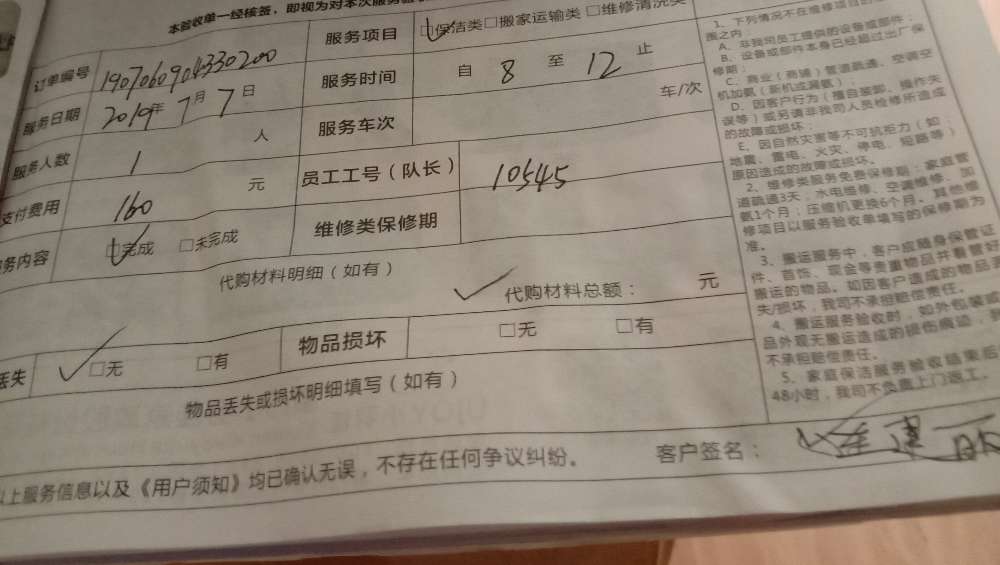 本验收单一经核签，即视为对本次服务
订单编号 1907060904330200 服务项目 □保洁类□搬家运输类□维修清洗类
服务日期 2019年7月7日 服务时间 自 8 至 12 止
服务人数 1 人 服务车次 车/次
支付费用 160 元 员工工号（队长） 10545
务内容 □完成 □未完成 维修类保修期
代购材料明细（如有） 代购材料总额： 元
丢失 □无 □有 物品损坏 □无 □有
物品丢失或损坏明细填写（如有）
以上服务信息以及《用户须知》均已确认无误，不存在任何争议纠纷。 客户签名：
1、下列情况不在维修项目的
围之内：
A、非我司员工提供的设备或部件；
B、设备或部件本身已经超过出厂保
修期；
C、商业（商铺）管道疏通、空调空
机加氨（新机或漏氨）；
D、因客户行为（擅自装卸、操作失
误等）或另请非我司人员检修所造成
的故障或损坏；
E、因自然灾害等不可抗拒力（如：
地震、雷电、火灾、停电、短路等）
原因造成的故障或损坏。
2、维修类服务免费保修期：家庭管
道疏通3天；水电维修、空调维修、加
氨1个月；压缩机更换6个月。其他维
修项目以服务验收单填写的保修期为
准。
3、搬运服务中，客户应随身保管证
件、首饰、现金等贵重物品并看管好
搬运的物品。如因客户造成的物品丢
失/损坏，我司不承担赔偿责任。
4、搬运服务验收时，如外包装或
品外观无搬运造成的损伤痕迹，我
不承担赔偿责任。
5、家庭保洁服务验收结束后
48小时，我司不负责上门返工。